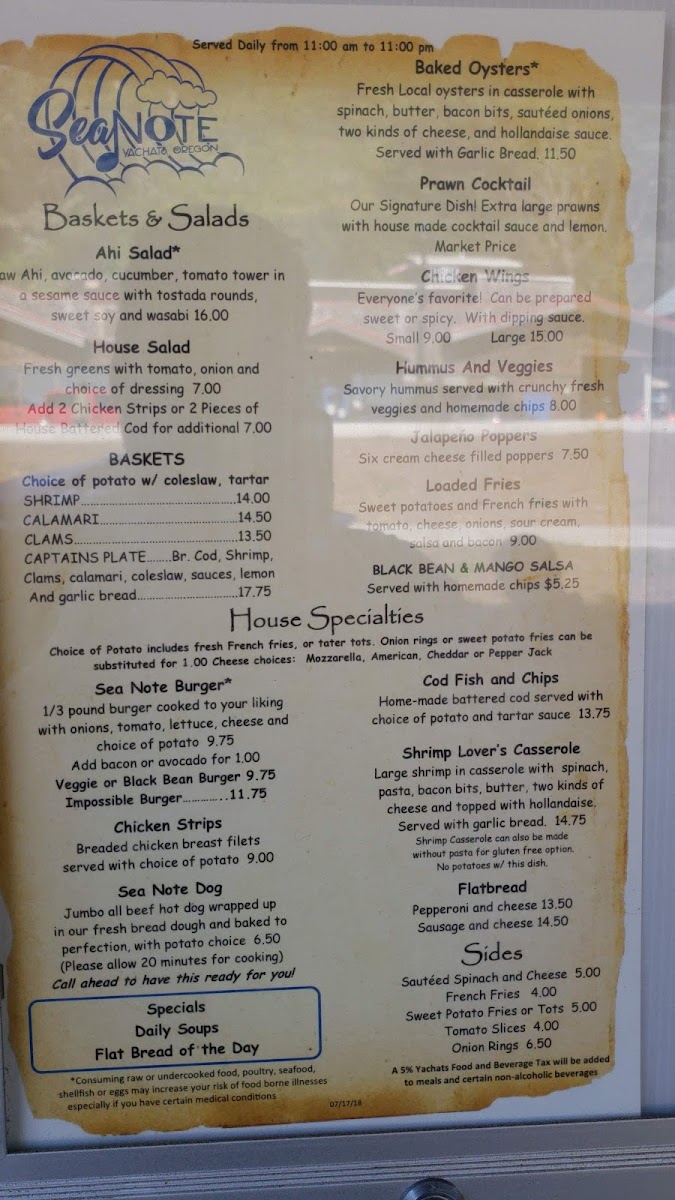 Served Daily from 11:00 am to 11:00 pm
SeaNOTE
YACHATS OREGON
Baskets & Salads
Ahi Salad*
aw Ahi, avocado, cucumber, tomato tower in
a sesame sauce with tostada rounds,
sweet soy and wasabi 16.00
House Salad
Fresh greens with tomato, onion and
choice of dressing 7.00
Add 2 Chicken Strips or 2 Pieces of
House Battered Cod for additional 7.00
BASKETS
Choice of potato w/ coleslaw, tartar
SHRIMP..............................14.00
CALAMARI..............................14.50
CLAMS..............................13.50
CAPTAINS PLATE........Br. Cod, Shrimp,
Clams, calamari, coleslaw, sauces, lemon
And garlic bread..............................17.75
Baked Oysters*
Fresh Local oysters in casserole with
spinach, butter, bacon bits, sautéed onions,
two kinds of cheese, and hollandaise sauce.
Served with Garlic Bread. 11.50
Prawn Cocktail
Our Signature Dish! Extra large prawns
with house made cocktail sauce and lemon.
Market Price
Chicken Wings
Everyone's favorite! Can be prepared
sweet or spicy. With dipping sauce.
Small 9.00 Large 15.00
Hummus And Veggies
Savory hummus served with crunchy fresh
veggies and homemade chips 8.00
Jalapeño Poppers
Six cream cheese filled poppers 7.50
Loaded Fries
Sweet potatoes and French fries with
tomato, cheese, onions, sour cream,
salsa and bacon 9.00
BLACK BEAN & MANGO SALSA
Served with homemade chips $5.25
House Specialties
Choice of Potato includes fresh French fries, or tater tots. Onion rings or sweet potato fries can be
substituted for 1.00 Cheese choices: Mozzarella, American, Cheddar or Pepper Jack
Sea Note Burger*
1/3 pound burger cooked to your liking
with onions, tomato, lettuce, cheese and
choice of potato 9.75
Add bacon or avocado for 1.00
Veggie or Black Bean Burger 9.75
Impossible Burger..............11.75
Chicken Strips
Breaded chicken breast filets
served with choice of potato 9.00
Sea Note Dog
Jumbo all beef hot dog wrapped up
in our fresh bread dough and baked to
perfection, with potato choice 6.50
(Please allow 20 minutes for cooking)
Call ahead to have this ready for you!
Specials
Daily Soups
Flat Bread of the Day
*Consuming raw or undercooked food, poultry, seafood,
shellfish or eggs may increase your risk of food borne illnesses
especially if you have certain medical conditions
Cod Fish and Chips
Home-made battered cod served with
choice of potato and tartar sauce 13.75
Shrimp Lover's Casserole
Large shrimp in casserole with spinach,
pasta, bacon bits, butter, two kinds of
cheese and topped with hollandaise.
Served with garlic bread. 14.75
Shrimp Casserole can also be made
without pasta for gluten free option.
No potatoes w/ this dish.
Flatbread
Pepperoni and cheese 13.50
Sausage and cheese 14.50
Sides
Sautéed Spinach and Cheese 5.00
French Fries 4.00
Sweet Potato Fries or Tots 5.00
Tomato Slices 4.00
Onion Rings 6.50
A 5% Yachats Food and Beverage Tax will be added
to meals and certain non-alcoholic beverages
07/17/18